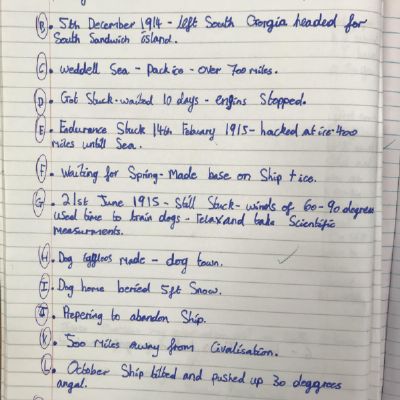 B. 5th December 1914 - left South Georgia headed for
South Sandwich island.
C. Weddell Sea - Pack ice - over 700 miles.
D. Got Stuck - waited 10 days - engins Stopped.
E. Endurance Stuck 14th Febuary 1915 - hacked at ice 400
miles untill Sea.
F. Waiting for Spring - Made base on Ship + ice.
G. 21st June 1915 - Still Stuck - winds of 60-90 degrees
used time to train dogs - relax and take Scientific
measurments.
H. Dog iggloos made - dog town.
I. Dog home beried 5ft Snow.
J. Prepering to abandon Ship.
K. 500 miles away from Civalisation.
L. October Ship tilted and pushed up 30 deggrees
angal.